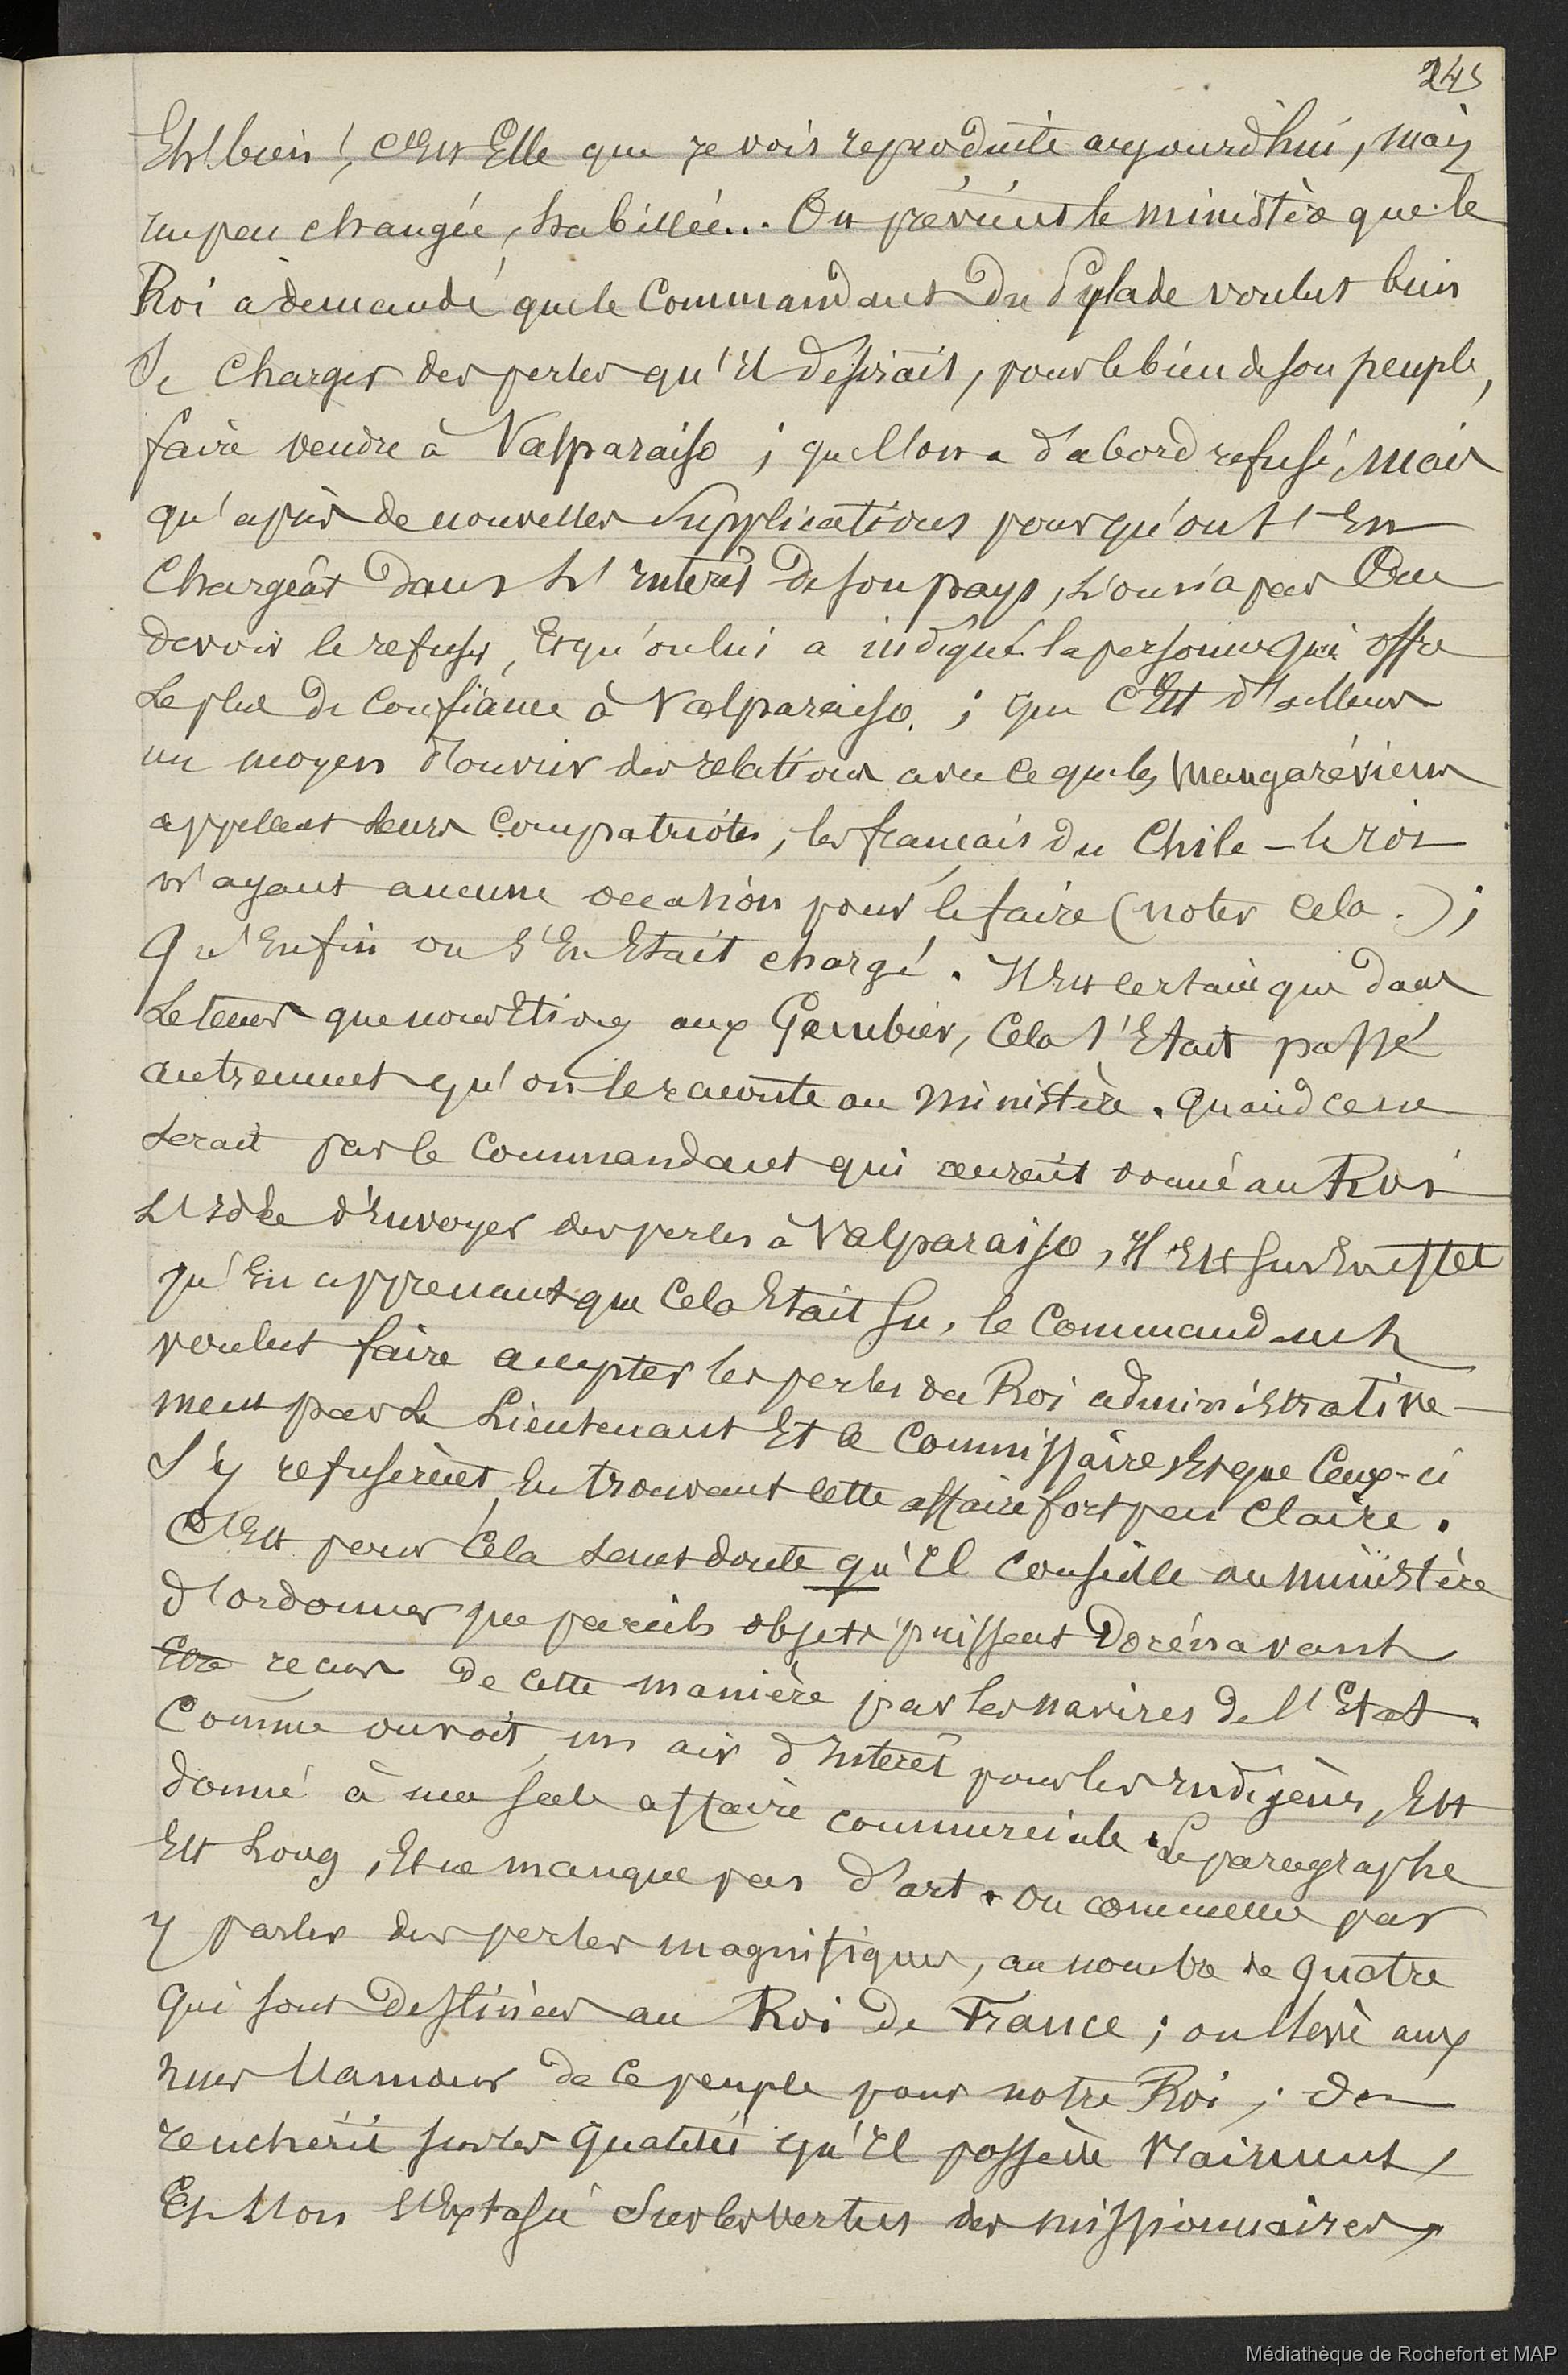 245
Eh! bien!, c'Est Elle que je vois reproduite aujourd'hui, mais
un peu changée, habillée... On prévient le ministère que le
Roi a demandé que le Commandant Du Pylade voulut bien
Se Charger des perles qu'Il Desirait, pour le bien de son peuple,
faire vendre à Valparaiso ; que l'on a d'abord refusé, mais
qu'après de nouvelles Supplications pour qu'on s'En
Chargeât Dans L'Interêt De son pays, L'on n'a pas Cru
devoir le refuser, Et qu'on lui a indiqué la personne qui offre
Le plus De Confiance à Valparaiso. ; que C'Est d'ailleurs
un moyen d'ouvrir des relations avec ce que les Mangaréviens
appellent Leurs Compatriotes, les français Du Chile - le roi
n'ayant aucune occasion pour le faire (noter cela.) ;
Qu'Enfin on S'En Etait chargé. Il Est certain que dans
Le tems que nous Etions aux Gambier, Cela s'Etait passé
autrement qu'on le raconte au Ministère. Quand ce ne
Serait pas le Commandant qui aurait donné au Roi
L'Idée d'Envoyer des perles à Valparaiso, Il Est sur En effet
qu'En apprenant que Cela Etait su, le Commandant
voulut faire accepter les perles du Roi administrative-
ment par Le Lieutenant Et le Commissaire, Et que Ceux-ci
S'y refusèrent, En trouvant cette affaire fort peu Claire.
C'Est pour Cela Sans doute qu'Il Conseille au Ministère
d'ordonner que pareils objets puissent Dorénavant
Etre recus De cette manière par les navires De l'Etat.
Comme on voit, un air d'Interêt pour les Indigènes, Est
donné à une sale affaire commerciale. Le paragraphe
Est Long, Et ne manque pas d'art. On commence par
y parler des perles magnifiques, au nombre de quatre
Qui sont Destinées au Roi De France ; on élève aux
nues l'amour de ce peuple pour notre Roi ; On
renchérit sur les qualités qu'Il possède vraiment,
Et l'on s'Extasie Sur les vertus des missionnaires,
Médiathèque de Rochefort et MAP